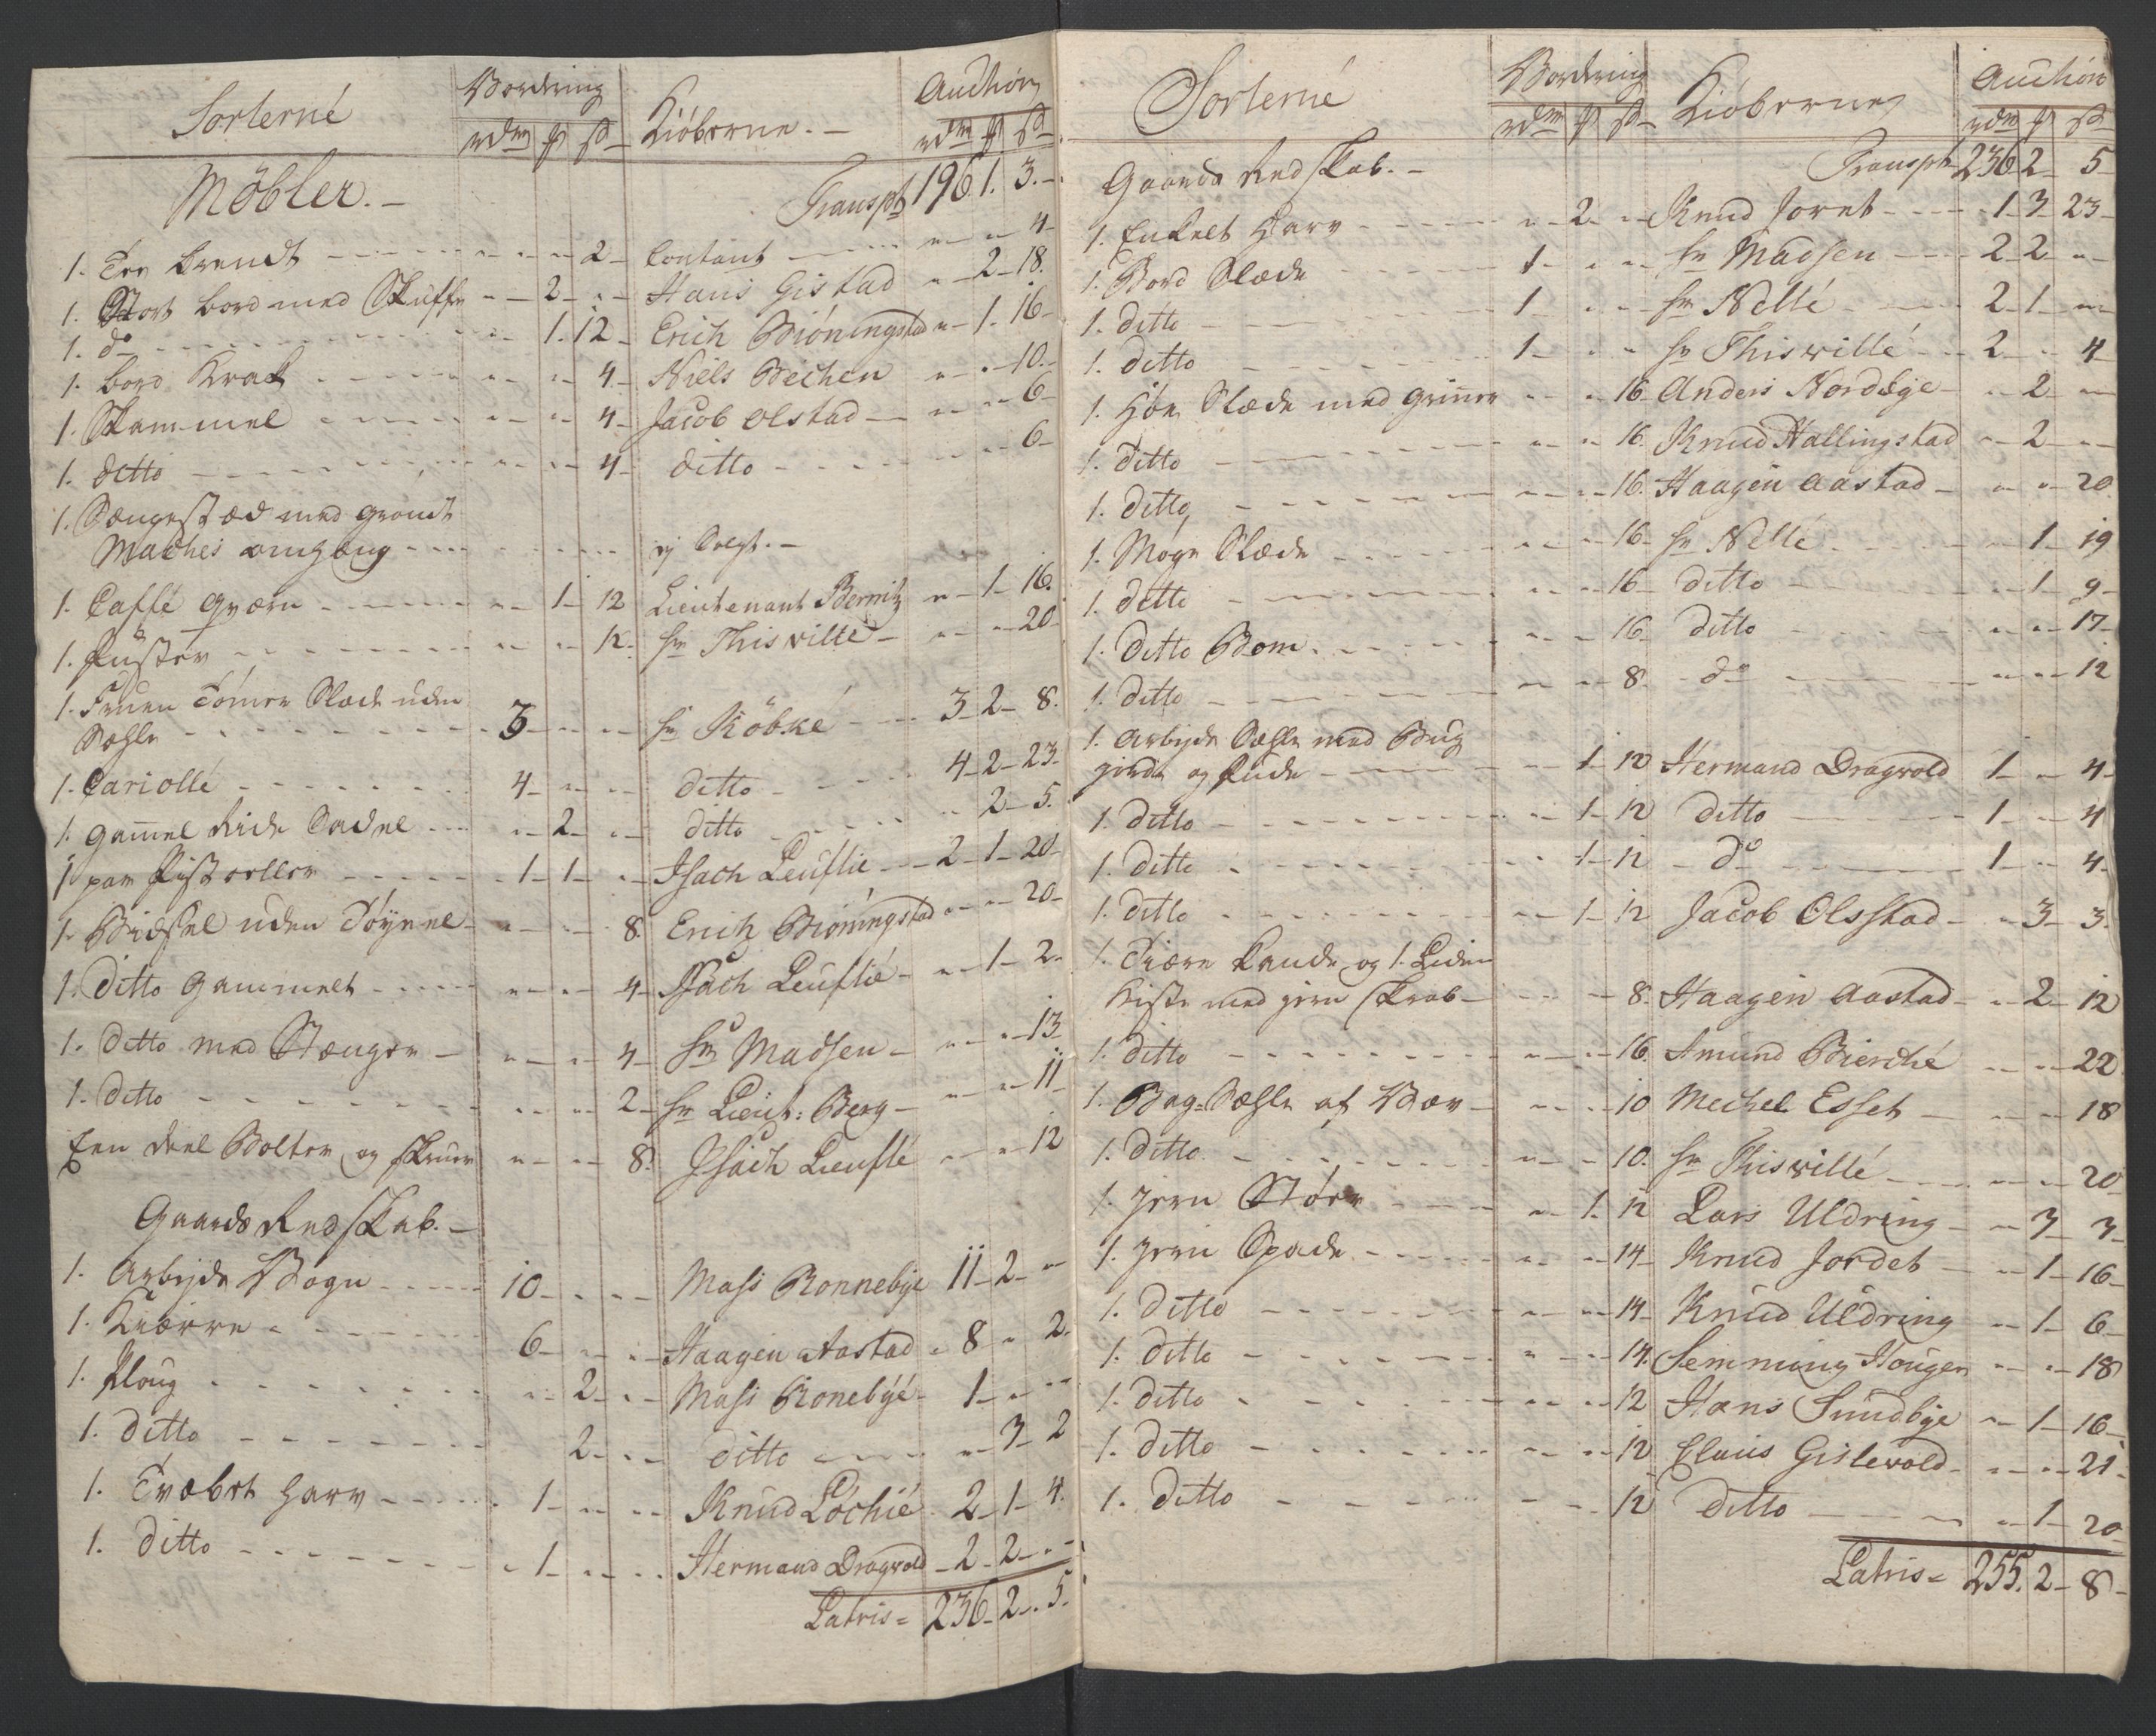 Sorterne Vordring Kiöberne. Auction
rdr ß rdr ß
Möbler. Transpt 196. 1. 3.
1. Træ brendt 2 Contant 4
1. Stort bord med Skuffe 2 Hans Gistad 2 18.
1. do 1. 12 Erich Biöningstad 1. 16
1. bord Krak 4 Niels Beichen 10.
1. Skammel 4 Jacob Olstad 6
1. ditto 4 ditto 6
1. Sengested med grönt
Maches omhæng ej Solgt.
1. Caffé Qværn 1 12 Lieutenant Bernitz 1 16.
1. Puster 12. hr Thisville 20
1. Tömer Slæde uden
Sehle 3 hr Köbke 3 2 8.
1. Cariolle 4 ditto 4 2 23.
1. gammel Ride Sadel 2 ditto 2 5.
1 par Pistoller 1 1 Isach Leuflie 2 1 20
1. Bidsel uden Töynel 8. Erich Biöningstad 20
1. Ditto Gammelt 4 Isach Leuflie 1 2.
1. Ditto med Stænger 4 hr Madsen 13
1. Ditto 2 hr Lieut: Berg 11
Een deel Bolter og skruer 8. Isach Leuflé 12
Gaards Redskab.
1. Arbejds Vogn 10 Mass Ronnebye 11 2
1. Kiærre 6 Haagen Aastad 8 2.
1. Ploug 2 Mass Ronebye 1
1. Ditto 2 ditto 3 2
1. Tvæbet harv 1 Knud Löchie 2 1 4.
1. Ditto 1 Hermand Dragvold 2 2
Latris 236 2 5.
Sorterne Vordring Kiöberne Auction
rdr ß rdr ß
Gaards Redskab. Transpt 236 2 5
1. Enkelt Harv 2 Knud Joret 1 3 23
1. Bord Slæde 1 hr Madsen 2 2
1. ditto 1 hr Nelle 2 1
1. ditto 1 hr Thisville 2 4
1. Höe Slæde med grinner 16 Anders Nordbye 2
1. Ditto 16. Knud Hallingstad 2
1. Ditto 16. Haagen Aastad 20
1. Mögn Slæde 16 hr Nelle 1 19
1. Ditto 16 ditto 1 9
1. Ditto Bom 16 ditto 17
1. Ditto 8. do 12
1. Arbejds Sehle med Bug
giorde og Pude 1 12 Hermand Dragvold 1 4
1. Ditto 1 12 ditto 1 4
1. Ditto 1 12 do 1 4.
1. Ditto 1 12 Jacob Olsstad 3 3.
1. Tiære tande og 1. Liden
Kiste med jern skrab 8. Haagen Aastad 2 12
1. Ditto 16. Amund Bierche 22
1. Bag-Sehle af Væv 10 Mechel Esset 18
1. Ditto 10. hr Thisville 20
1. Jern Stör 1. 12 Lars Uldring 3 3
1. Jern Spade 14 Knud Jordet 1 16
1. Ditto 14 Knud Uldring 1 6
1. Ditto 14. Semming Hougen 18
1. Ditto 12 Hans Sundbye 1 16
1. Ditto 12 Claus Gislevold 21
1. Ditto 12 Ditto 1 20
Latris 255. 2 8